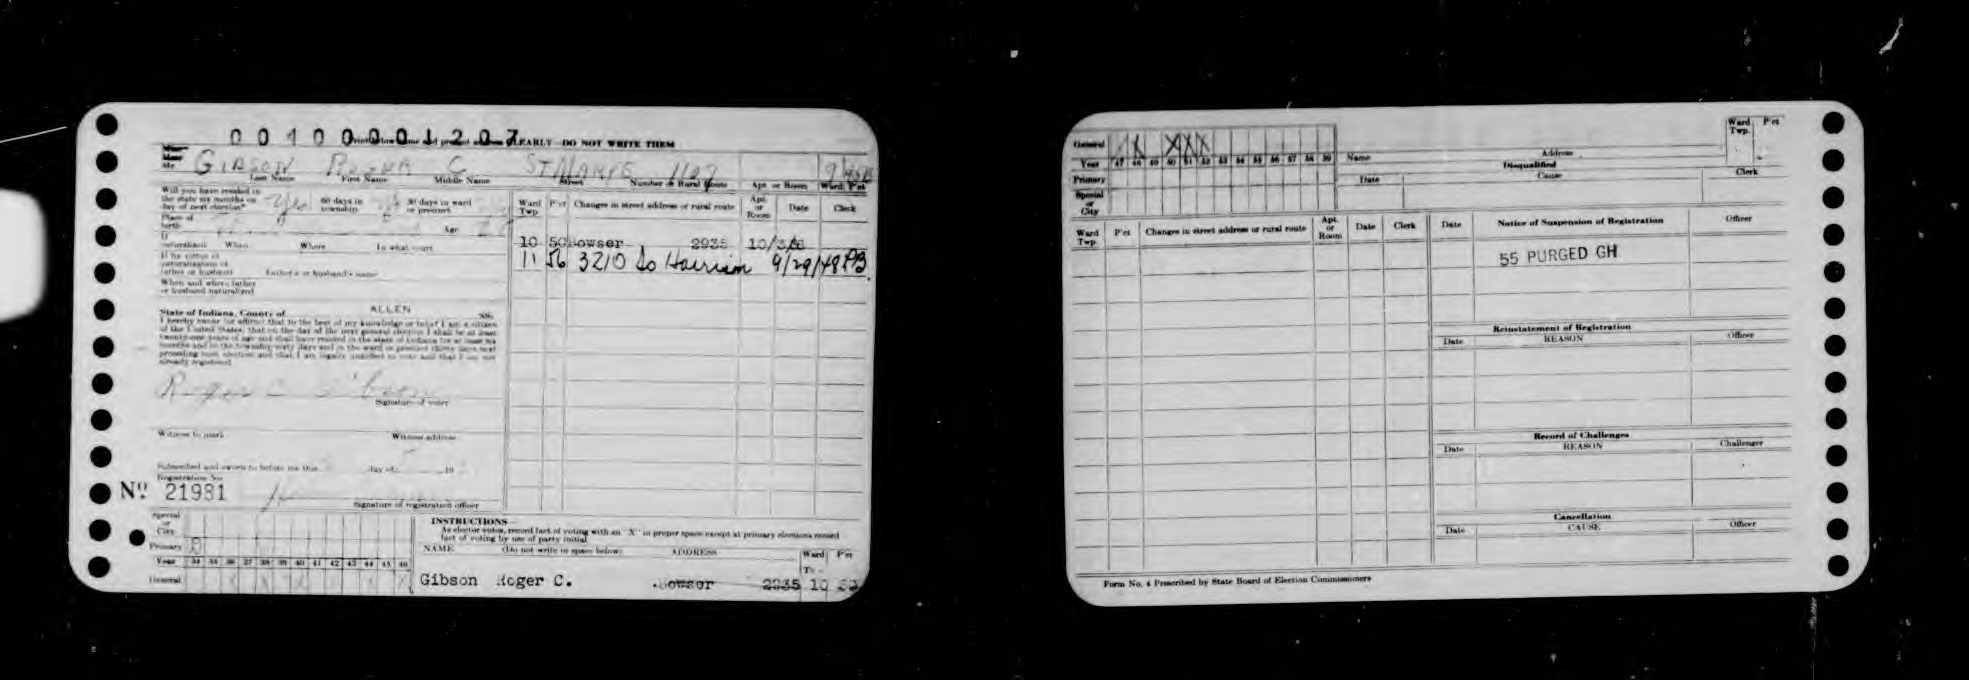 00100001207
CLEARLY—DO NOT WRITE THEM
Mr GIBSON ROGER C 1127
Last Name First Name Middle Name Street Number or Rural Route Apt. or Room Ward P'ct
Will you have resided in the state six months on day of next election? Yes 60 days in township 30 days in ward or precinct
Place of birth Age
If naturalized When Where In what court
If by virtue of naturalization of father or husband Father's or husband's name
When and where father or husband naturalized
State of Indiana, County of ALLEN SS:
I hereby swear (or affirm) that to the best of my knowledge or belief I am a citizen
of the United States, that on the day of the next general election I shall be at least
twenty-one years of age and shall have resided in the state of Indiana for at least six
months and in the township sixty days and in the ward or precinct thirty days next
preceding such election and that I am legally qualified to vote and that I am not
already registered.
Roger C Gibson
Signature of voter
Witness to mark Witness address
Subscribed and sworn to before me this day of 19
Registration No.
Nº 21981
Signature of registration officer
Ward Twp P'ct Changes in street address or rural route Apt. or Room Date Clerk
10 50 Bowser 2935 10/3/
11 56 3210 So Harrison 9/29/48 PB
Special or City
Primary D
Year 34 35 36 37 38 39 40 41 42 43 44 45 46
General X X X X
INSTRUCTIONS—
As elector votes, record fact of voting with an "X" in proper space except at primary elections record
fact of voting by use of party initial
NAME (Do not write in space below) ADDRESS Ward Tp. P'ct
Gibson Roger C. Bowser 2935 10
General X X XXX
Year 47 48 49 50 51 52 53 54 55 56 57 58 59
Primary
Special or City
Name Address Ward Twp. P'ct
Disqualified
Date Cause Clerk
Ward Twp P'ct Changes in street address or rural route Apt. or Room Date Clerk
Date Notice of Suspension of Registration Officer
55 PURGED GH
Reinstatement of Registration
Date REASON Officer
Record of Challenges
Date REASON Challenger
Cancellation
Date CAUSE Officer
Form No. 4 Prescribed by State Board of Election Commissioners